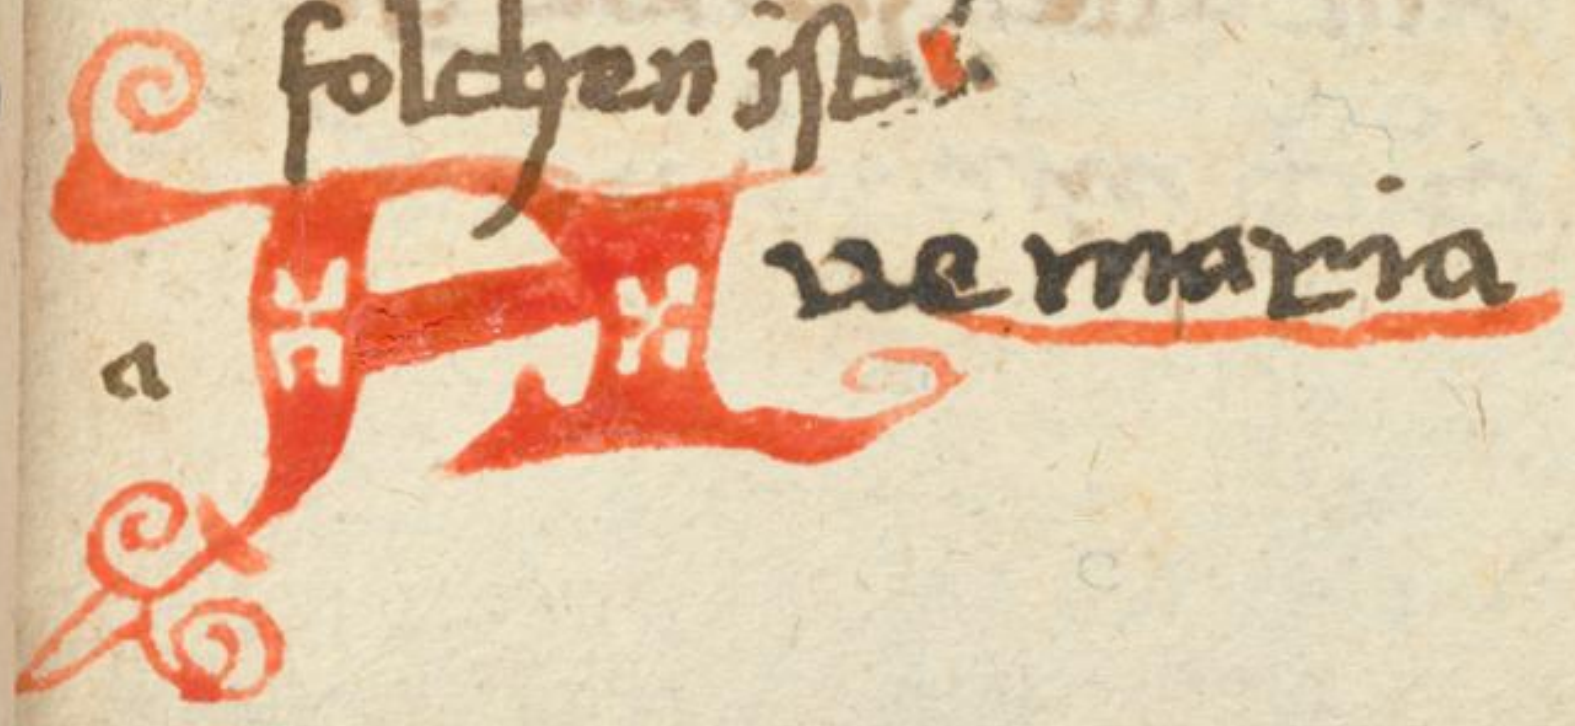 solchen ist
a
Ave maria